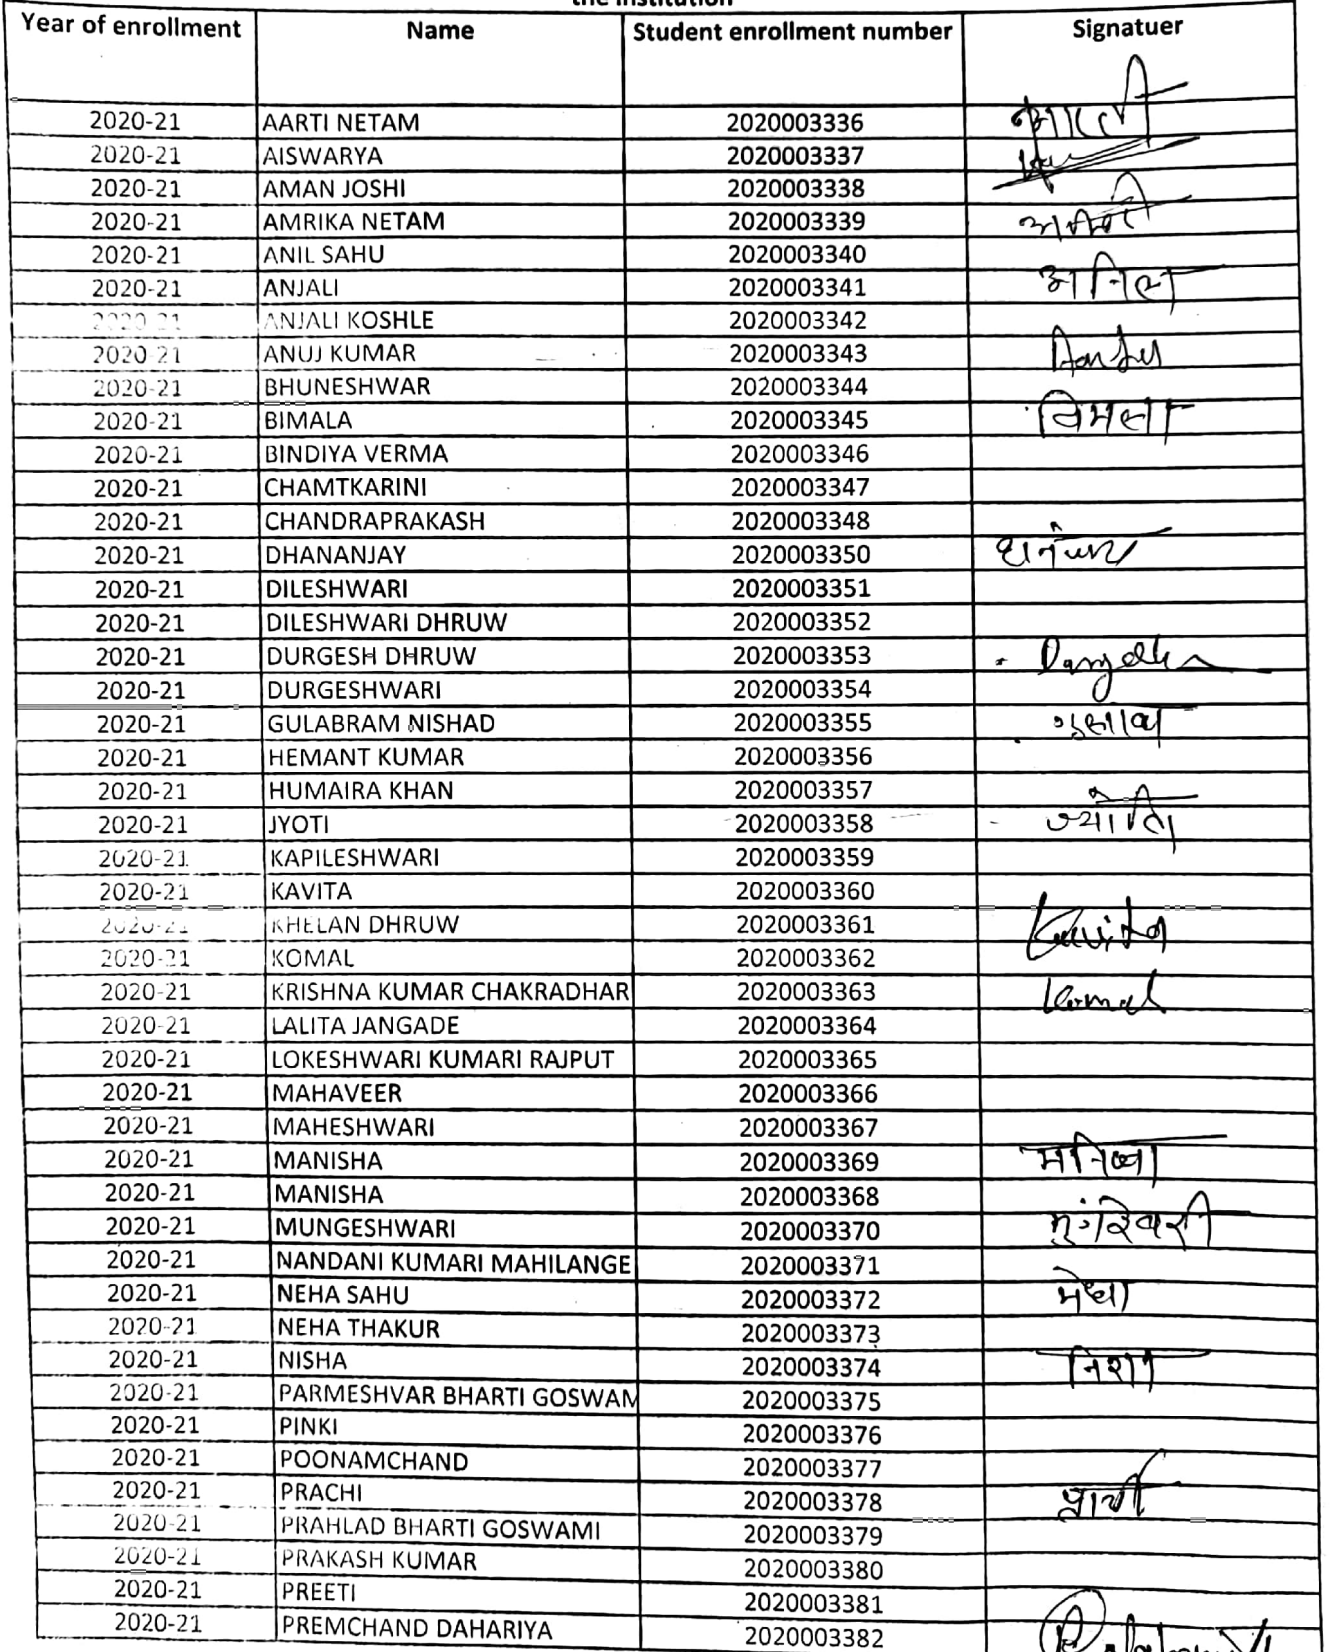 the institution
Year of enrollment Name Student enrollment number Signatuer
2020-21 AARTI NETAM 2020003336 आरती
2020-21 AISWARYA 2020003337
2020-21 AMAN JOSHI 2020003338
2020-21 AMRIKA NETAM 2020003339
2020-21 ANIL SAHU 2020003340
2020-21 ANJALI 2020003341 अनिल
2020-21 ANJALI KOSHLE 2020003342
2020-21 ANUJ KUMAR 2020003343
2020-21 BHUNESHWAR 2020003344
2020-21 BIMALA 2020003345 बिमला
2020-21 BINDIYA VERMA 2020003346
2020-21 CHAMTKARINI 2020003347
2020-21 CHANDRAPRAKASH 2020003348
2020-21 DHANANJAY 2020003350
2020-21 DILESHWARI 2020003351
2020-21 DILESHWARI DHRUW 2020003352
2020-21 DURGESH DHRUW 2020003353
2020-21 DURGESHWARI 2020003354
2020-21 GULABRAM NISHAD 2020003355 गुलाब
2020-21 HEMANT KUMAR 2020003356
2020-21 HUMAIRA KHAN 2020003357
2020-21 JYOTI 2020003358 ज्योति
2020-21 KAPILESHWARI 2020003359
2020-21 KAVITA 2020003360
2020-21 KHELAN DHRUW 2020003361 Kavita
2020-21 KOMAL 2020003362
2020-21 KRISHNA KUMAR CHAKRADHAR 2020003363 Komal
2020-21 LALITA JANGADE 2020003364
2020-21 LOKESHWARI KUMARI RAJPUT 2020003365
2020-21 MAHAVEER 2020003366
2020-21 MAHESHWARI 2020003367
2020-21 MANISHA 2020003369 मनिषा
2020-21 MANISHA 2020003368
2020-21 MUNGESHWARI 2020003370 मुंगेश्वरी
2020-21 NANDANI KUMARI MAHILANGE 2020003371
2020-21 NEHA SAHU 2020003372
2020-21 NEHA THAKUR 2020003373
2020-21 NISHA 2020003374 निशा
2020-21 PARMESHVAR BHARTI GOSWAM 2020003375
2020-21 PINKI 2020003376
2020-21 POONAMCHAND 2020003377
2020-21 PRACHI 2020003378 प्राची
2020-21 PRAHLAD BHARTI GOSWAMI 2020003379
2020-21 PRAKASH KUMAR 2020003380
2020-21 PREETI 2020003381
2020-21 PREMCHAND DAHARIYA 2020003382